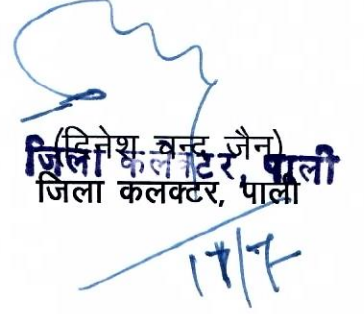 (दिनेश चन्द जैन)
जिला कलक्टर, पाली
जिला कलक्टर, पाली